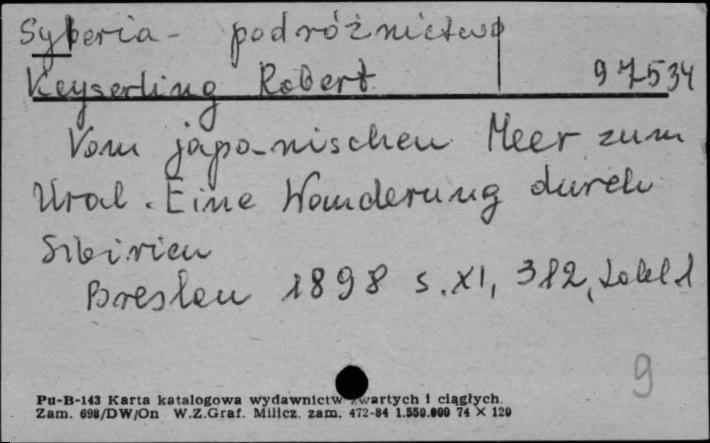 Syberia - podróżnictwo
Keyserling Robert 97534
Vom japanischen Meer zum
Ural. Eine Wanderung durch
Sibirien
Breslau 1898 s. XI, 312, 1
9
Pu-B-143 Karta katalogowa wydawnictw zwartych i ciągłych.
Zam. 698/DW/On W.Z.Graf. Milicz. zam. 472-84 1.550.000 74 × 120